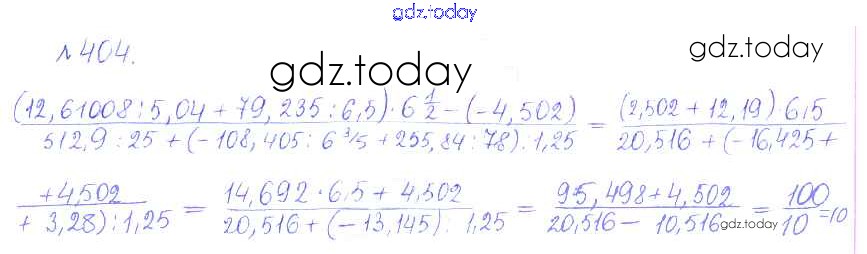 gdz.today
№404.
gdz.today
gdz.today
(12,61008:5,04 + 79,235:6,5)·6 1/2 - (-4,502) / 512,9:25 + (-108,405:6 3/5 + 255,84:78):1,25 = (2,502 + 12,19)·6,5 / 20,516 + (-16,425 +
+4,502 / + 3,28):1,25 = 14,692·6,5 + 4,502 / 20,516 + (-13,145):1,25 = 95,498 + 4,502 / 20,516 - 10,516 = 100 / 10 = 10
gdz.today